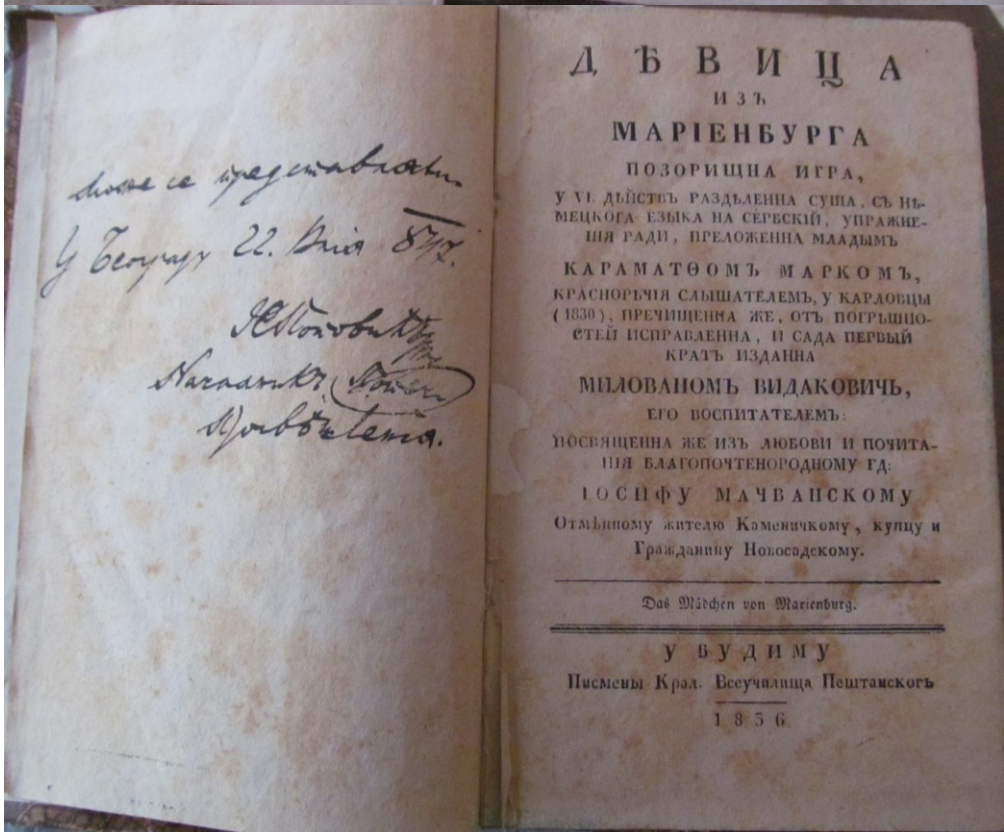 може се представляти
У Београду 22. Юлія 847.
Начланикъ
Просвѣщенія.
ДѢВИЦА
ИЗЪ
МАРІЕНБУРГА
ПОЗОРИЩНА ИГРА,
У VI. ДѢЙСТВЪ РАЗДѢЛЕННА СУЩА, СЪ НѢ-
МЕЦКОГА ЕЗЫКА НА СЕРБСКІЙ, УПРАЖНЕ-
НІЯ РАДИ, ПРЕЛОЖЕННА МЛАДЫМЪ
КАРАМАТѲОМЪ МАРКОМЪ,
КРАСНОРѢЧІЯ СЛЫШАТЕЛЕМЪ, У КАРЛОВЦЫ
(1830), ПРЕЧИЩЕННА ЖЕ, ОТЪ ПОГРѢШНО-
СТЕЙ ИСПРАВЛЕННА, И САДА ПЕРВЫЙ
КРАТЪ ИЗДАННА
МИЛОВАНОМЪ ВИДАКОВИЧЬ,
ЕГО ВОСПИТАТЕЛЕМЪ:
ПОСВЯЩЕННА ЖЕ ИЗЪ ЛЮБОВИ И ПОЧИТА-
НІЯ БЛАГОПОЧТЕНОРОДНОМУ ГД:
ІОСИФУ МАЧВАНСКОМУ
Отмѣнному жителю Каменичкому, купцу и
Гражданину Новосадскому.
Das Mädchen von Marienburg.
У БУДИМУ
Писмены Крал. Всеучилища Пештанскогъ
1836